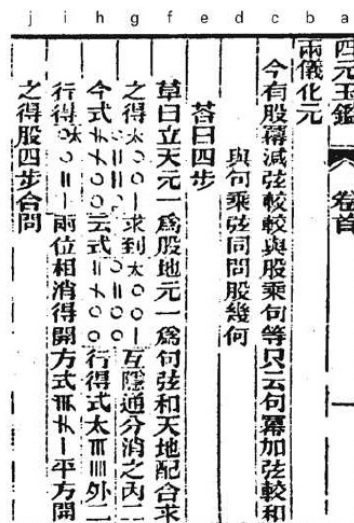 j i h g f e d c b a
四元玉鑑 卷首 一
兩儀化元
今有股冪減弦較較與股乘句等只云句冪加弦較和
與句乘弦同問股幾何
荅曰四步
草曰立天元一爲股地元一爲句弦和天地配合求
之得太〇〇 求到太〇〇〇 互隱通分消之內二
今式 云式 行得式太 外二
行得太 兩位相消得開方式 平方開
之得股四步合問